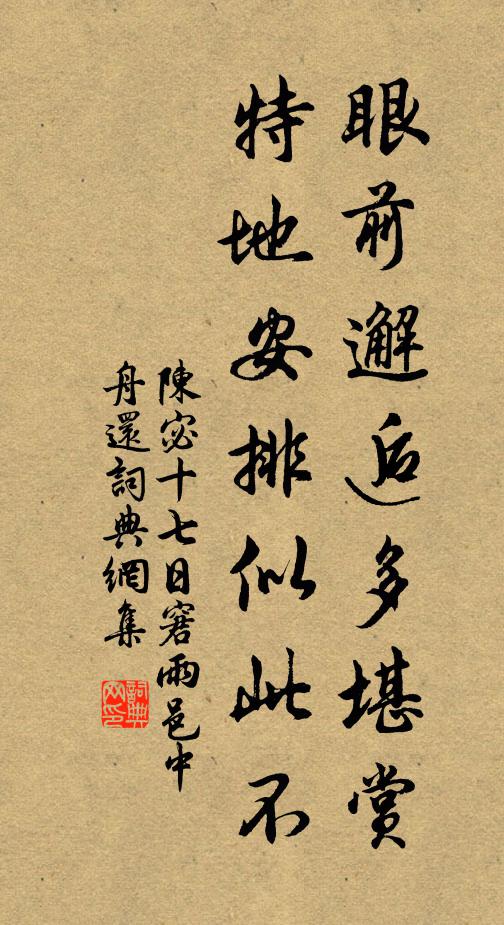 眼前邂逅多堪賞
特地安排似此不
陳宓十七日窘雨邑中
舟還詞典網集
詞典网印